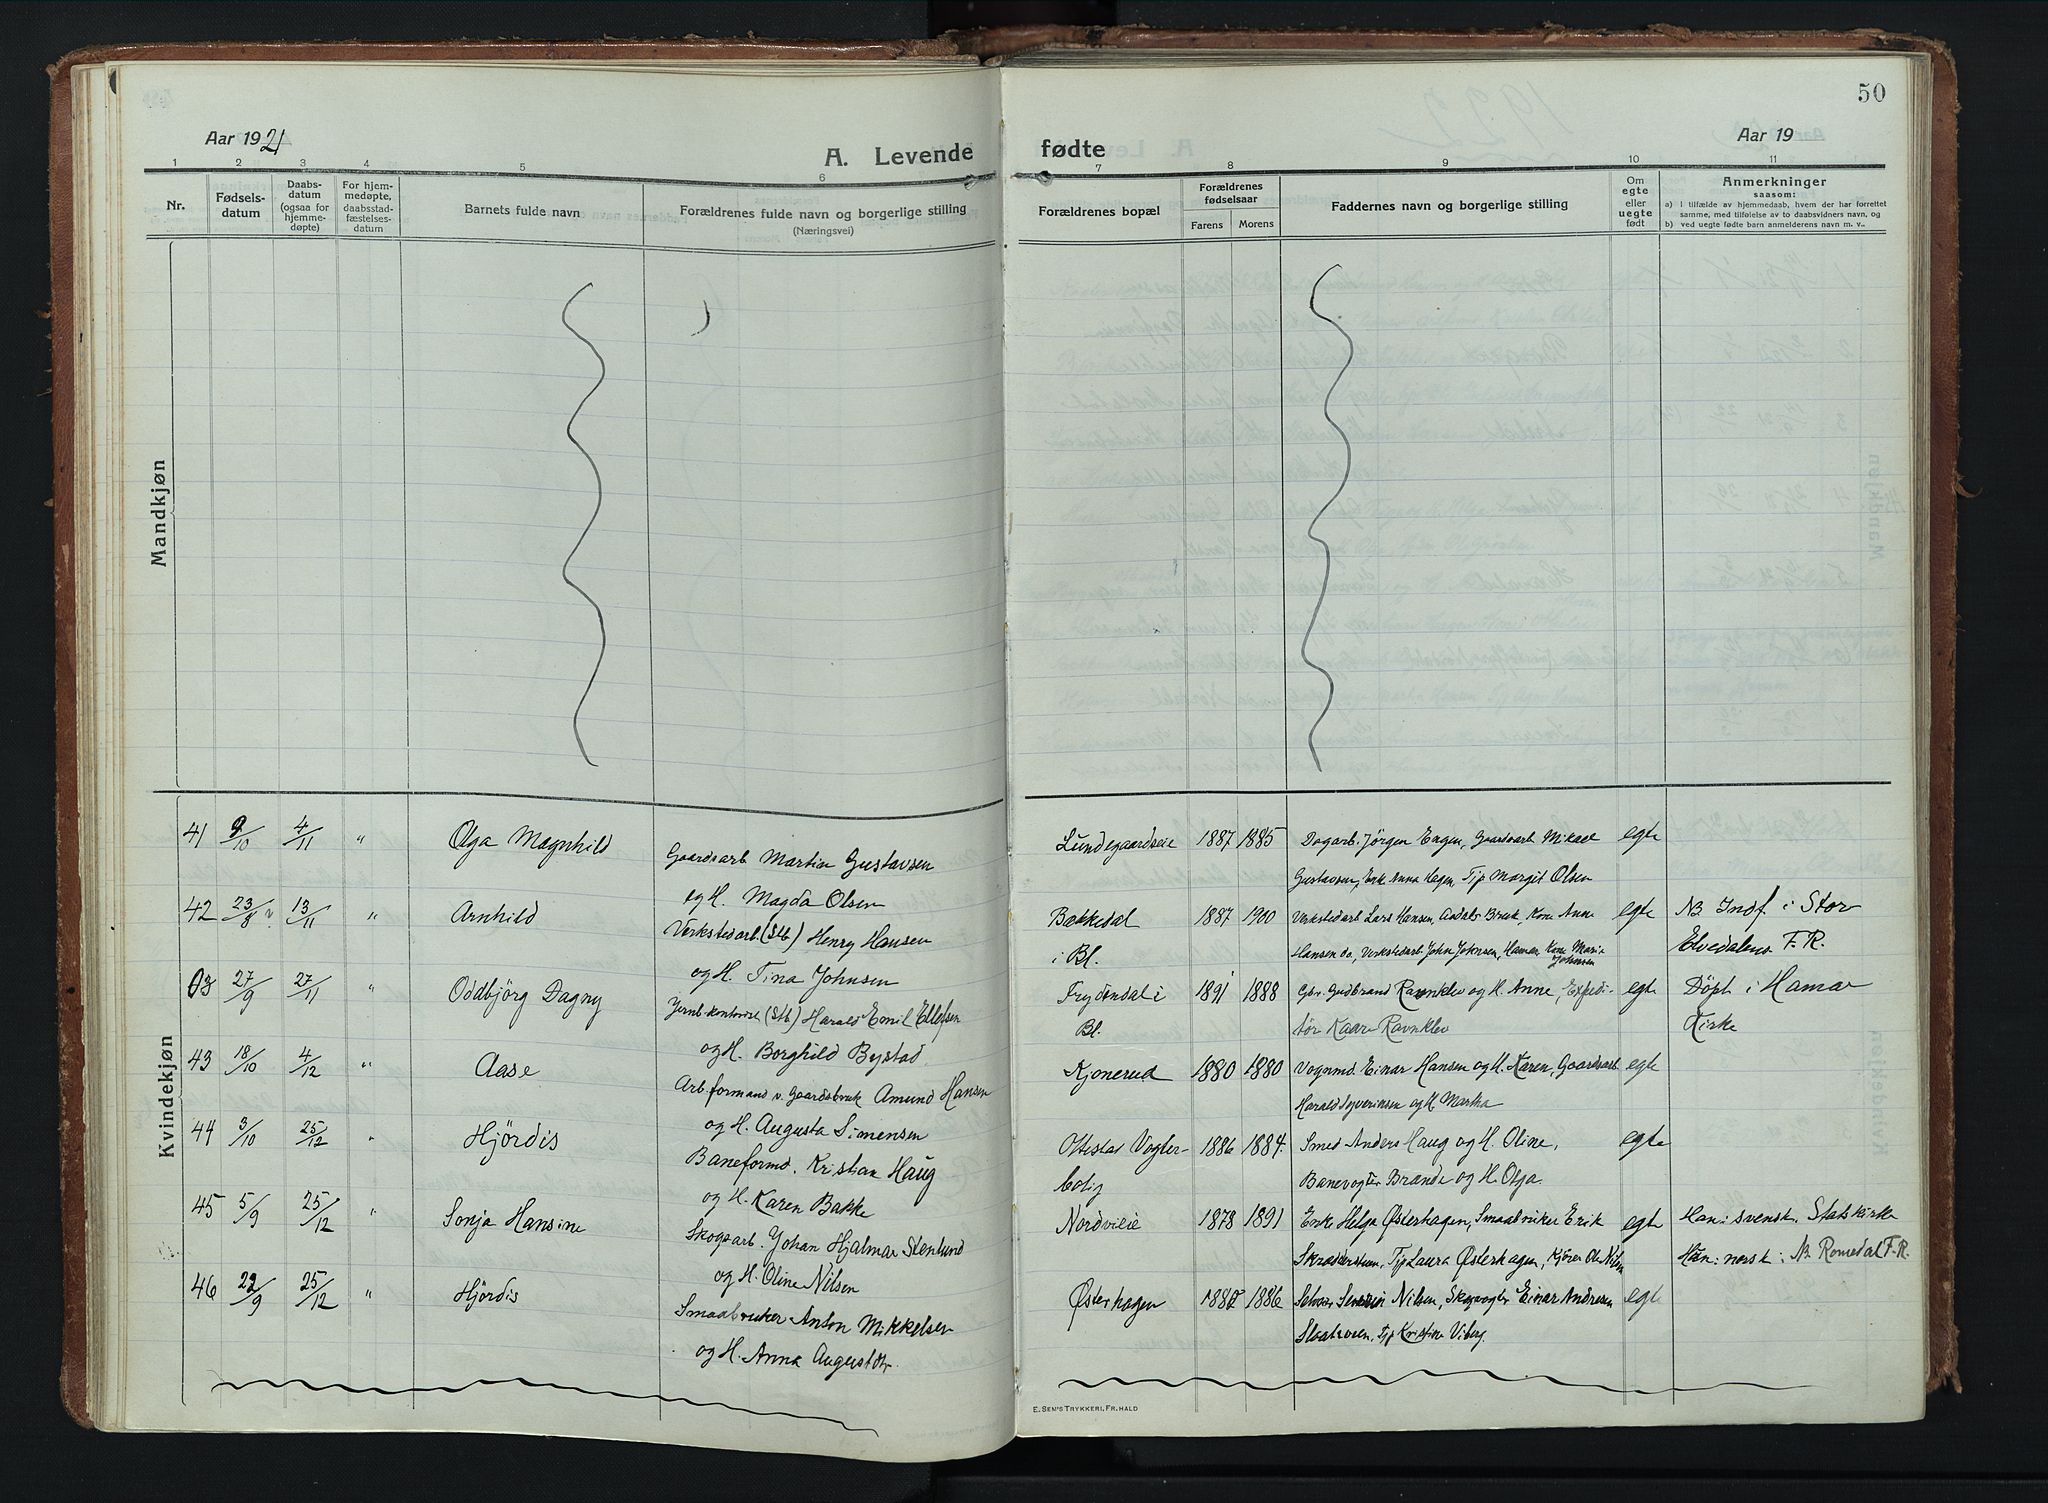 Aar 1921
A. Levende
1 2 3 4 5 6
Nr.
Fødselsdatum
Daabsdatum (ogsaa for hjemmedøpte)
For hjemmedøpte, daabsstadfæstelsesdatum
Barnets fulde navn
Forældrenes fulde navn og borgerlige stilling
(Næringsvei)
Mandkjøn
Kvindekjøn
41 9/10 4/11 " Olga Magnhild
Gaardsarb Martin Gustavsen
og H. Magda Olsen
42 23/8 13/11 " Arnhild
Verkstedarb. (Stb) Henry Hansen
og H. Tina Johnsen
27/9 27/11 " Oddbjörg Dagny
Jernb.kontorist (Stb) Harald Emil Ellefsen
og H. Borghild Bystad
43 18/10 4/12 " Aase
Arb formand v. Gaardsbruk Amund Hansen
og H. Augusta Simensen
44 3/10 25/12 " Hjördis
Baneformd. Kristian Haug
og H. Karen Bakke
45 5/9 25/12 " Sonja Hansine
Skogsarb. Johan Hjalmar Stenlund
og H. Oline Nilsen
46 22/9 25/12 " Hjördis
Smaabruker Anton Mikkelsen
og H. Anna Augustdtr.
50
Aar 19
fødte
7 8 9 10 11
Forældrenes bopæl
Forældrenes fødselsaar
Farens Morens
Faddernes navn og borgerlige stilling
Om egte eller uegte født
Anmerkninger
saasom:
a) I tilfælde av hjemmedaab, hvem der har forrettet
samme, med tilføielse av to daabsvidners navn, og
b) ved uegte fødte barn anmelderens navn m. v..
Lundegaardseie 1887 1885 Dagarb. Jörgen Engen, Gaardsarb Mikael egte
Gustavsen, Enke Anna Hagen Tjp Margit Olsen
Bakkedal 1887 1900 Verkstedarb Lars Hansen, Kone Anne egte NB Indf. i Stor
i Bl. Hansen do, Verkstedarb John Johnsen, Hamar, Kone Marie Johnsen Elvedalens F.R.
Frydendal i 1891 1888 Gbr. Gudbrand Ravnklev og H. Anne, Expedi- egte Döpt i Hamar
Bl. tör Kaare Ravnklev Kirke
Kjonerud 1880 1880 Vognmd. Einar Hansen og H. Karen, Gaardsarb egte
Harald Syverinsen og H. Martha
Ottestad Vogter- 1886 1884. Smed Anders Haug og H. Oline, egte
bolig Banevogter Brænde og H. Olga.
Nordvieie 1878 1891 Enke Helga Østerhagen, Smaabruker Erik egte Han: svensk. Statskirke
Skræderstuen, Tjp Laura Østerhagen, Kjörer Ole Nilsen Hun: norsk: NB Romedal F.R.
Østerhagen 1886 Nilsen, Skogvogter Einar Andresen egte
Tjp Kristine Viberg
E. SEM'S TRYKKERI, FR.HALD